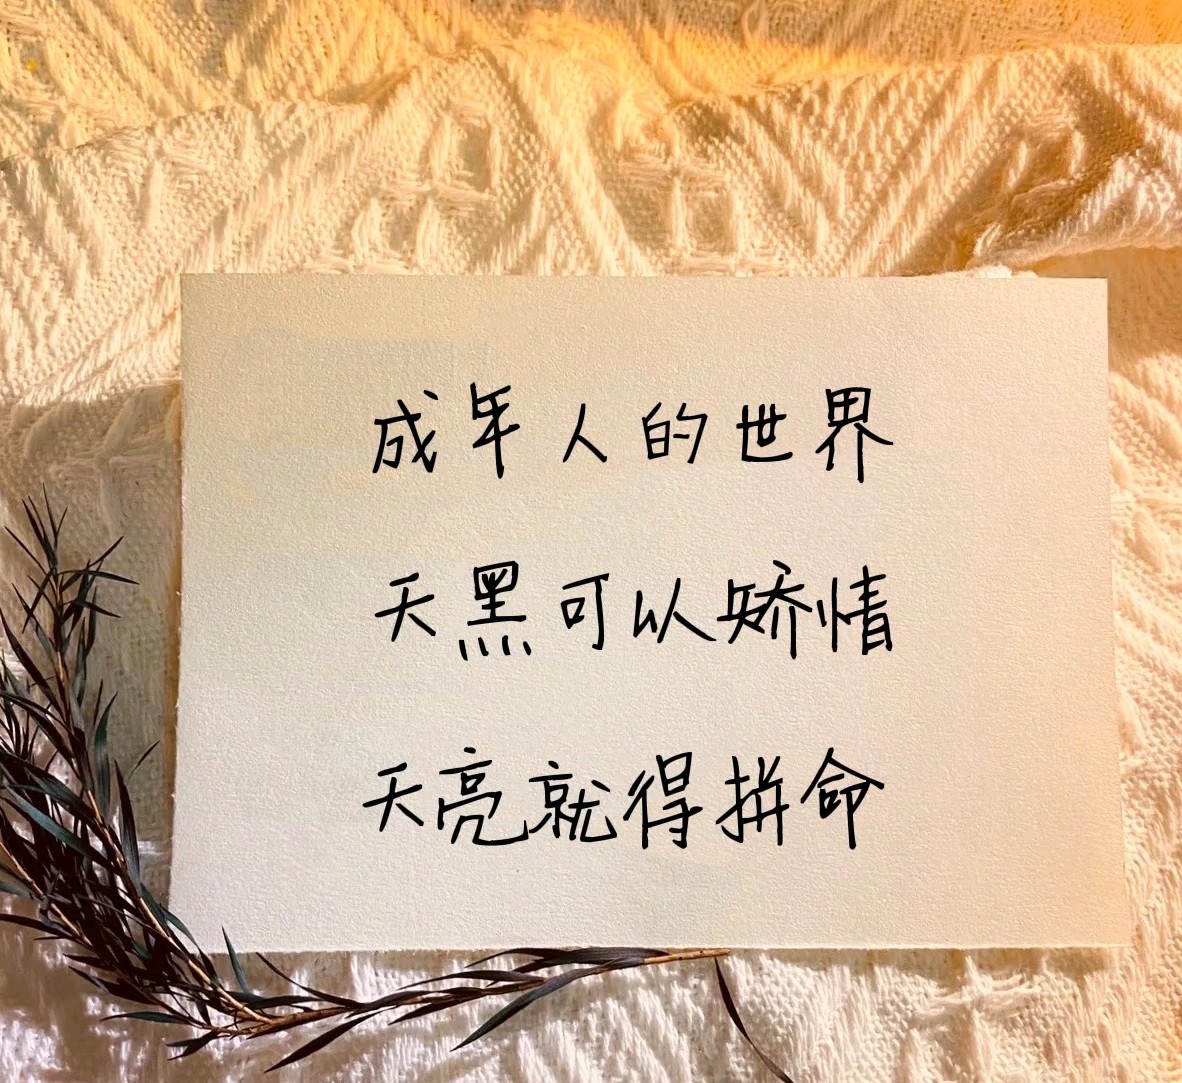 成年人的世界
天黑可以矫情
天亮就得拼命